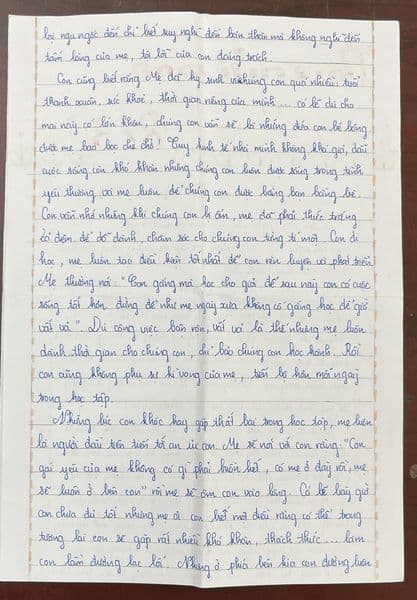 lại ngu ngốc đến chỉ biết suy nghĩ đến bản thân mà không nghĩ đến
tấm lòng của mẹ, tội lỗi của con đáng trách.
Con cũng biết rằng Mẹ đã hy sinh vì chúng con quá nhiều: tuổi
thanh xuân, sức khỏe, thời gian riêng của mình... có lẽ dù cho
mai này có lớn khôn, chúng con vẫn sẽ là những đứa con bé bỏng
được mẹ bao bọc chở che! Tuy kinh tế nhà mình không khá giả, dẫu
cuộc sống còn khó khăn nhưng chúng con luôn được sống trong tình
yêu thương và mẹ luôn để chúng con được bằng bạn bằng bè.
Con vẫn nhớ những khi chúng con bị ốm, mẹ đã phải thức trắng
cả đêm để dỗ dành, chăm sóc cho chúng con từng tí một. Con đi
học, mẹ luôn tạo điều kiện tốt nhất để con rèn luyện và phát triển.
Mẹ thường nói: "Con gắng mà học cho giỏi để sau này con có cuộc
sống tốt hơn đừng để như mẹ ngày xưa không cố gắng học để giờ
vất vả". Dù công việc bận rộn, vất vả là thế nhưng mẹ luôn
dành thời gian cho chúng con, chỉ bảo chúng con học hành. Rồi
con cũng không phụ sự kì vọng của mẹ, tiến bộ hơn mỗi ngày
trong học tập.
Những lúc con khóc hay gặp thất bại trong học tập, mẹ luôn
là người đầu tiên tiến tới an ủi con. Mẹ sẽ nói với con rằng: "Con
gái yêu của mẹ không có gì phải buồn hết, có mẹ ở đây rồi, mẹ
sẽ luôn ở bên con" rồi mẹ sẽ ôm con vào lòng. Có lẽ bây giờ
con chưa đủ tốt nhưng mẹ ơi con biết một điều rằng có thể trong
tương lai con sẽ gặp rất nhiều khó khăn, thách thức... làm
con lầm đường lạc lối. Nhưng ở phía bên kia con đường luôn